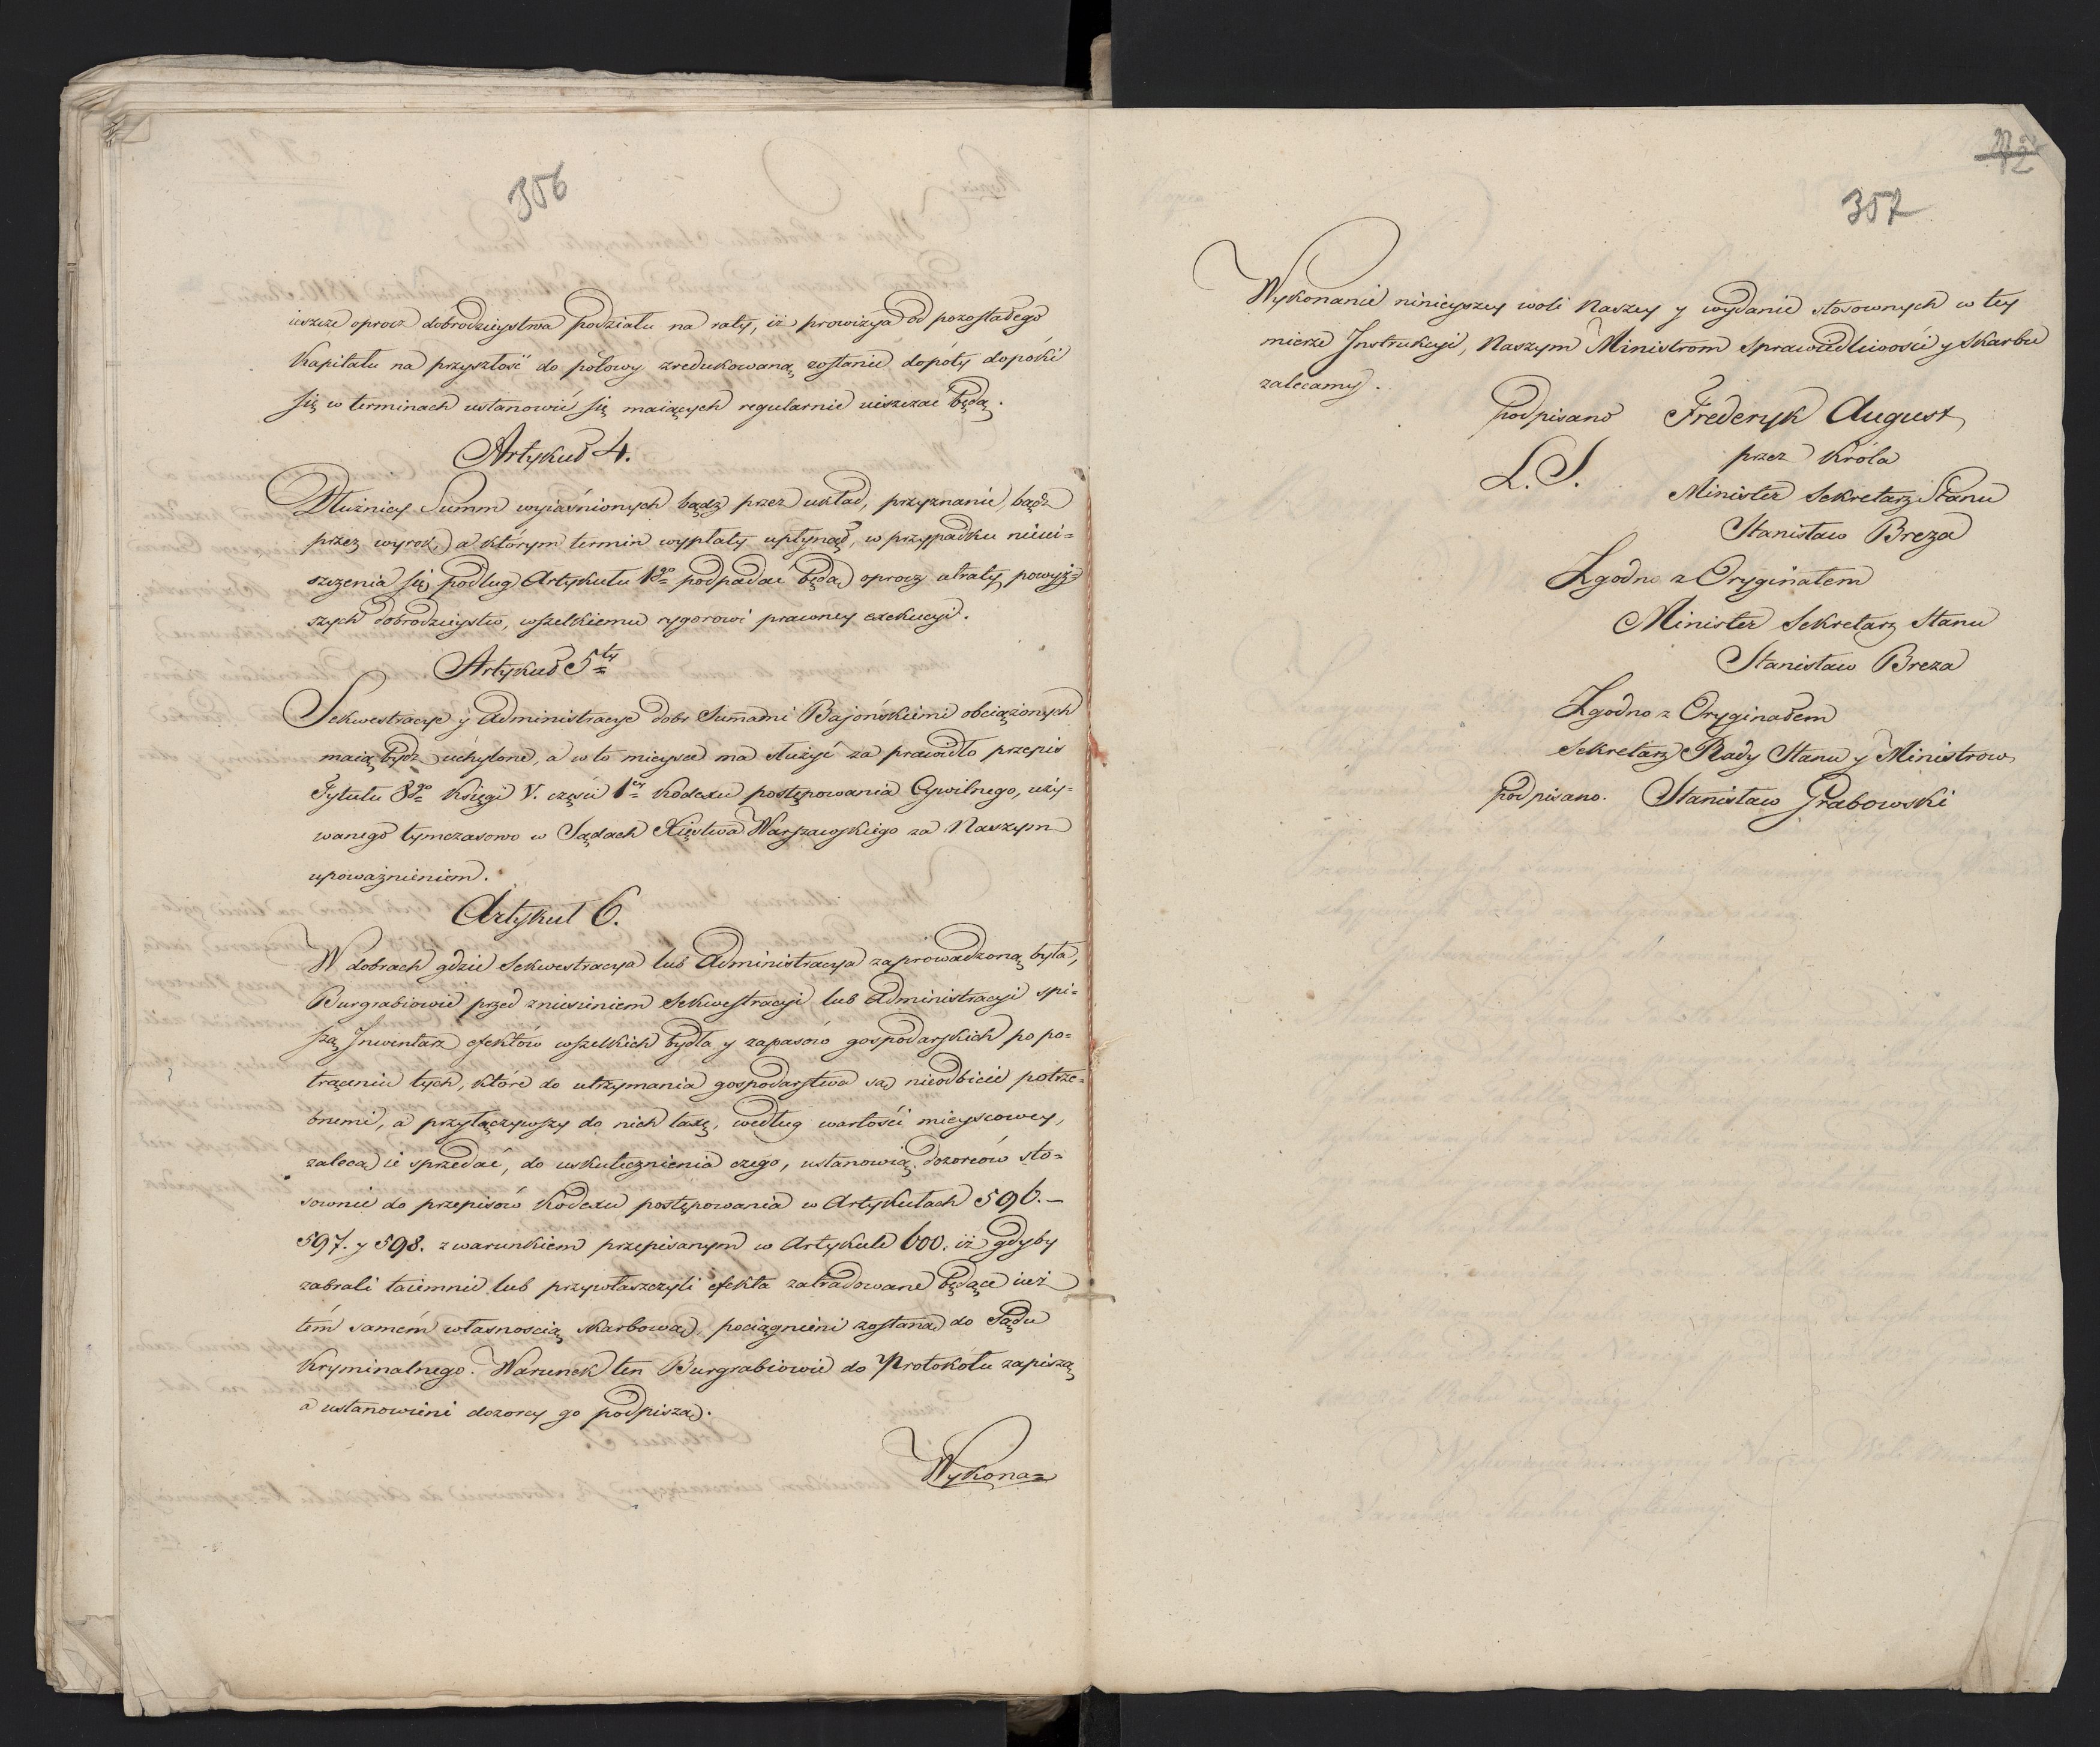 356
ieszcze oprocz dobrodzieystwa podziału na raty, iż prowizya od pozostałego
Kapitału na przyszłość do połowy zredukowaną zostanie dopóty dopóki
się w terminach ustanowić się maiących regularnie uiszczać będą.
Artykuł 4.
Dłużnicy Summ wyiaśnionych bądź przez układ, przyznanie, bądź
przez wyrok, a którym termin wypłaty upłynął, w przypadku nieui=
szczenia się podług Artykułu 1go podpadać będą oprocz utraty powyż=
szych dobrodzieystw, wszelkiemu rygorowi prawney exekucyi.
Artykuł 5ty
Sekwestracye y Administracye dobr Summami Bajońskiemi obciążonych
maią bydź uchylone, a w to mieysce ma służyć za prawidło przepis
Tytułu 8go Księgi V. części 1ey Kodexu postępowania Cywilnego, uży=
wanego tymczasowo w Sądach Xięstwa Warszawskiego za Naszym
upoważnieniem.
Artykuł 6.
W dobrach gdzie Sekwestracya lub Administracya zaprowadzoną była,
Burgrabiowie przed zniesieniem Sekwestracyi lub Administracyi spi=
szą Inwentarz efektów wszelkich bydła y zapasów gospodarskich po po=
trąceniu tych, które do utrzymania gospodarstwa są nieodbicie potrze=
bnemi, a przyłączywszy do nich taxę, według wartości mieyscowey,
zalecą ie sprzedać, do uskutecznienia czego, ustanowią dozorców sto=
sownie do przepisów Kodexu postępowania w Artykułach 596. –
597. y 598. z warunkiem przepisanym w Artykule 600. iż gdyby
zabrali taiemnie lub przywłaszczyli efekta zatradowane będące iuż
tém samém własnoscią skarbową, pociągnieni zostaną do Sądu
Kryminalnego. Warunek ten Burgrabiowie do Protokółu zapiszą
a ustanowieni dozorcy go podpiszą.
Wykona=
357
Wykonanie ninieyszey woli Naszey y wydanie stosownych w tey
mierze Instrukcyi, Naszym Ministrom Sprawiedliwości y Skarbu
zalecamy.
podpisano Frederyk August
przez Króla
L. S.
Minister Sekretarz Stanu
Stanisław Breza
Zgodno z Oryginałem
Minister Sekretarz Stanu
Stanisław Breza
Zgodno z Oryginałem
Sekretarz Rady Stanu y Ministrow
podpisano. Stanisław Grabowski